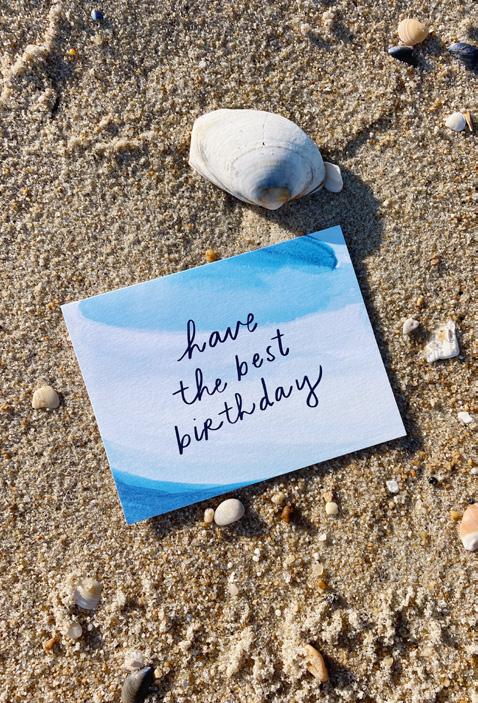 have
the best
birthday